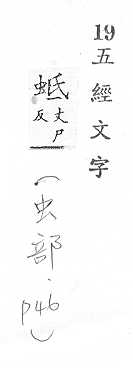 19五經文字
蚳丈尸反
（虫部．p46）